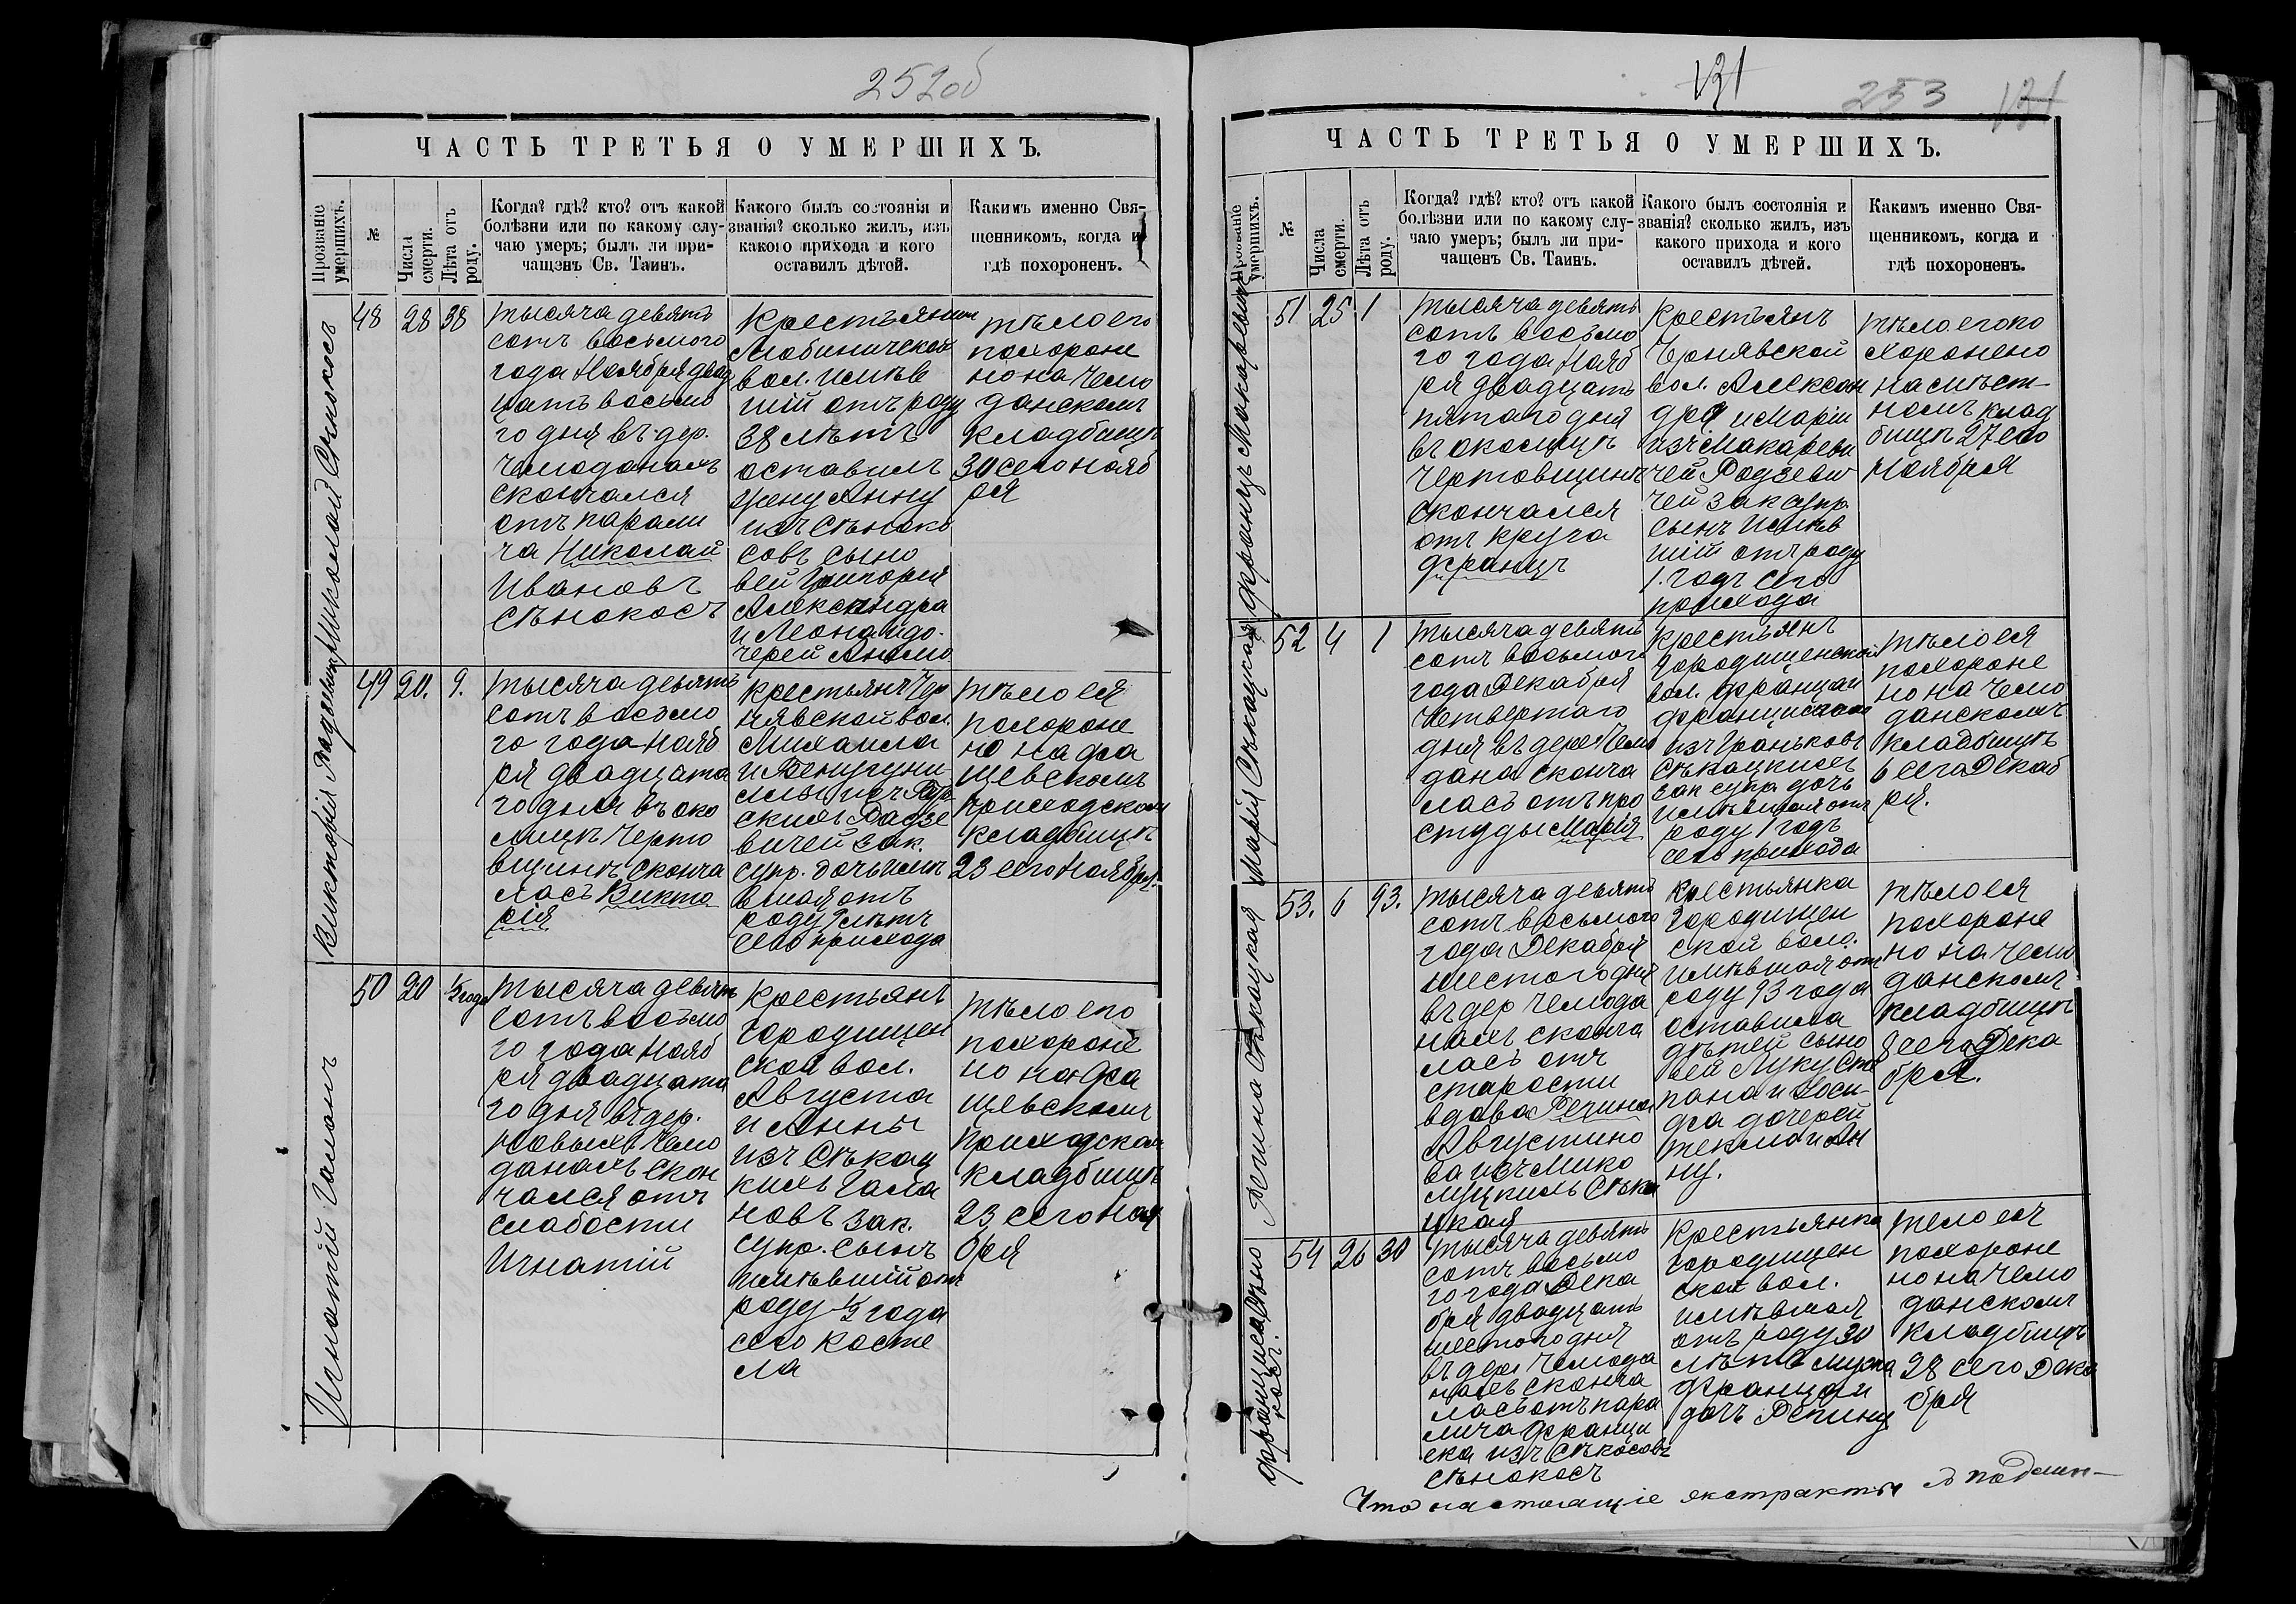 252об
ЧАСТЬ ТРЕТЬЯ О УМЕРШИХЪ.
Прозваніе умершихъ.
№
Числа смерти.
Лѣта отъ роду.
Когда? гдѣ? кто? отъ какой
болѣзни или по какому слу-
чаю умеръ; былъ ли при-
чащенъ Св. Таинъ.
Какого былъ состоянія и
званія? сколько жилъ, изъ
какого прихода и кого
оставилъ дѣтей.
Какимъ именно Свя-
щенникомъ, когда и
гдѣ похороненъ.
Николай Сѣнокосъ
48
28
38
тысяча девять
сотъ восьмого
года Ноября двад
цать восьмо
го дня въ дер.
Чемоданахъ
скончался
отъ парали
ча Николай
Ивановъ
Сѣнокосъ
Крестьянин
вол. имѣв
шій отъ роду
38 лѣтъ
оставилъ
жену Анну
изъ Сѣноко
совъ сыно
вей Григорія
Александра
и Леона и до-
черей
тѣло его
похороне
но на Чемо
данскомъ
кладбищѣ
30 сего Нояб
ря
Викторія
49
20.
9.
тысяча девять
сотъ восьмо
го года Нояб
ря двадцата
го дня въ око
лицѣ Черто
вщинѣ сконча
лась Викто
рія
крестьянъ Чер
нявской вол.
Михаила
скихъ Радзе
вичей зак.
супр. дочь имѣ
вшая отъ
роду 9 лѣтъ
сего прихода
тѣло ея
похороне
но на Фа
щевскомъ
приходском
кладбищѣ
23 сего Ноября.
Игнатій Галонъ
50
20
½ года
тысяча девять
сотъ восьмо
го года Нояб
ря двадцата
го дня въ дер.
Новыхъ Чемо
данахъ скон
чался отъ
слабости
Игнатій
Крестьянъ
Городищен
ской вол.
Августа
и Анны
изъ Сѣкац
кихъ Гала
новъ зак.
супр. сынъ
имѣвшій отъ
роду ½ года
сего косте
ла
тѣло его
похороне
но на Фа
щевскомъ
приходском
кладбищѣ
23 сего Ноя
бря
131
253
131
ЧАСТЬ ТРЕТЬЯ О УМЕРШИХЪ.
Прозваніе умершихъ.
№
Числа смерти.
Лѣта отъ роду.
Когда? гдѣ? кто? отъ какой
болѣзни или по какому слу-
чаю умеръ; былъ ли при-
чащенъ Св. Таинъ.
Какого былъ состоянія и
званія? сколько жилъ, изъ
какого прихода и кого
оставилъ дѣтей.
Какимъ именно Свя-
щенникомъ, когда и
гдѣ похороненъ.
Францъ
51
25
1
тысяча девять
сотъ восьмо
го года Нояб
ря двадцать
пятаго дня
въ околицѣ
Чертовщинѣ
скончался
отъ круга
Францъ
Крестьянъ
Чернявской
вол. Алексан
дра и Маріи
изъ Макареви
чей Родзеви
чей зак супр.
сынъ имѣв
шій отъ роду
1. годъ сего
прихода
тѣло его по
хоронено
на мѣст-
номъ клад
бищѣ 27 сего
Ноября
Марія Сѣкацкая
52
4
1
тысяча девять
сотъ восьмого
года Декабря
четвертаго
дня въ дере Чемо
дана сконча
лась отъ про
студы Марія
крестьянъ
Городищенской
вол. Францаи
Франциски
изъ Граньковъ
Сѣкацкихъ
зак супр. дочь
имѣвшая отъ
роду 1 годъ
сего прихода
тѣло ея
похороне
но на Чемо
данскомъ
кладбищѣ
6 сего Декаб
ря.
Регина Сѣкацкая
53.
6
93.
тысяча девять
сотъ восьмого
года Декабря
шестого дня
въ дер Чемода
нахъ сконча
лась отъ
старости
вдова Регина
Августино
ва изъ Мико
луцкихъ Сѣка
цкая
Крестьянка
Городищен
ской воло.
имѣвшая отъ
роду 93 года
оставила
дѣтей сыно
вей Луку Сте
пана и Іоси
фа дочерей
Теклю и Ан
ну.
тѣло ея
похороне
но на Чемо
данскомъ
кладбищѣ
8 сего Дека
бря.
Франциска Сѣнокосъ
54
26
30
тысяча девять
сотъ восьмо
го года Дека
бря двадцать
шестого дня
въ дере Чемода
нахъ сконча
лась отъ пара
лича Францис
ска изъ Сѣкосовъ
Сѣнокосъ
Крестьянка
Городищен
ской вол.
имѣвшая
отъ роду 30
лѣтъ мужа
Францаи
дочь Регину
тело ея
похороне
но на Чемо
данскомъ
кладбищѣ
28 сего Дека
бря
Что настоящіе экстракты съ подлин-